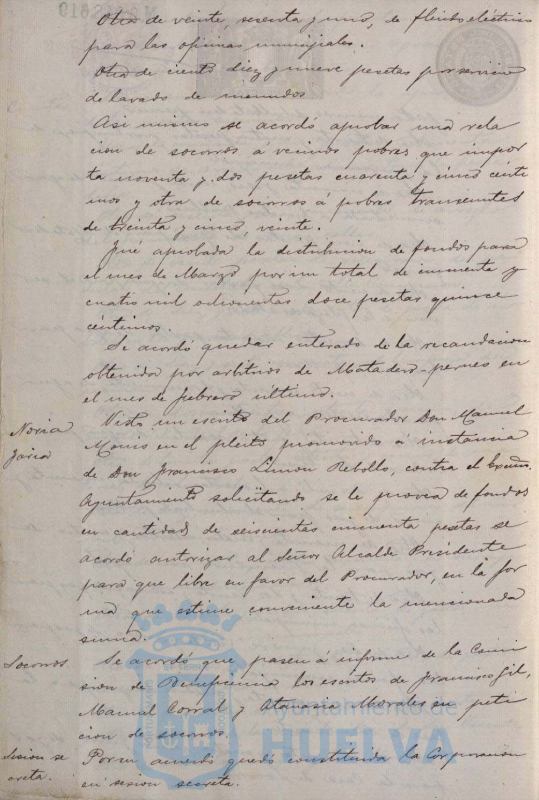 Otra de veinte, sesenta y uno, de fluido eléctrico
para las oficinas municipales.
Otra de ciento diez y nueve pesetas por servicio
de lavado de menudos
Asi mismo se acordó aprobar una rela
cion de socorros á vecinos pobres que impor
ta noventa y dos pesetas cuarenta y cinco cénti
mos y otra de socorros á pobres transeuntes
de treinta y cinco, veinte.
Fué aprobada la distribucion de fondos para
el mes de Marzo por un total de cincuenta y
cuatro mil ochocientas doce pesetas quince
céntimos.
Se acordó quedar enterado de la recaudacion
obtenida por arbitrios de Matadero-pernes en
el mes de febrero último.
Noria
Visto un escrito del Procurador Don Manuel
en el pleito promovido á instancia
de Don Francisco Limon Rebollo, contra el Excmo.
Ayuntamiento solicitando se le provea de fondos
en cantidad de seiscientas cincuenta pesetas se
acordó autorizar al Señor Alcalde Presidente
para que libre en favor del Procurador, en la for
ma que estime conveniente la mencionada
suma.
Socorros
Se acordó que pasen á informe de la Comi
sion de Beneficencia los escritos de Francisco Gil,
Manuel Corral y Atanasia Morales en peti
cion de socorros.
Sesion se
creta.
Por un acuerdo quedó constituida la Corporacion
en sesion secreta.
Ayuntamiento de
HUELVA